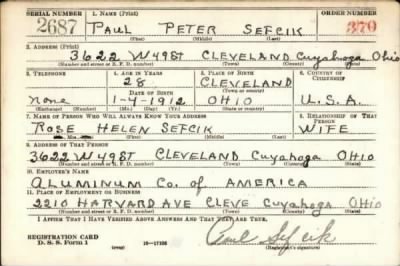 SERIAL NUMBER 1. NAME (Print) ORDER NUMBER
2687 PAUL PETER SEFCIK 370
(First) (Middle) (Last)
2. ADDRESS (Print)
3622 W 49ST CLEVELAND Cuyahoga Ohio
(Number and street or R. F. D. number) (Town) (County) (State)
3. TELEPHONE 4. AGE IN YEARS 5. PLACE OF BIRTH 6. COUNTRY OF CITIZENSHIP
28 CLEVELAND
DATE OF BIRTH (Town or county)
none 1-4-1912 OHIO U.S.A.
(Exchange) (Number) (Mo.) (Day) (Yr.) (State or country)
7. NAME OF PERSON WHO WILL ALWAYS KNOW YOUR ADDRESS 8. RELATIONSHIP OF THAT PERSON
ROSE HELEN SEFCIK WIFE
(Mr., Mrs., Miss) (First) (Middle) (Last)
9. ADDRESS OF THAT PERSON
3622 W 49ST CLEVELAND Cuyahoga OHIO
(Number and street or R. F. D. number) (Town) (County) (State)
10. EMPLOYER'S NAME
ALUMINUM Co. of AMERICA
11. PLACE OF EMPLOYMENT OR BUSINESS
2210 HARVARD AVE CLEVE Cuyahoga OHIO
(Number and street or R. F. D. number) (Town) (County) (State)
I AFFIRM THAT I HAVE VERIFIED ABOVE ANSWERS AND THAT THEY ARE TRUE.
REGISTRATION CARD
D. S. S. Form 1 (over) 16—17105 Paul Sefcik
(Registrant's signature)